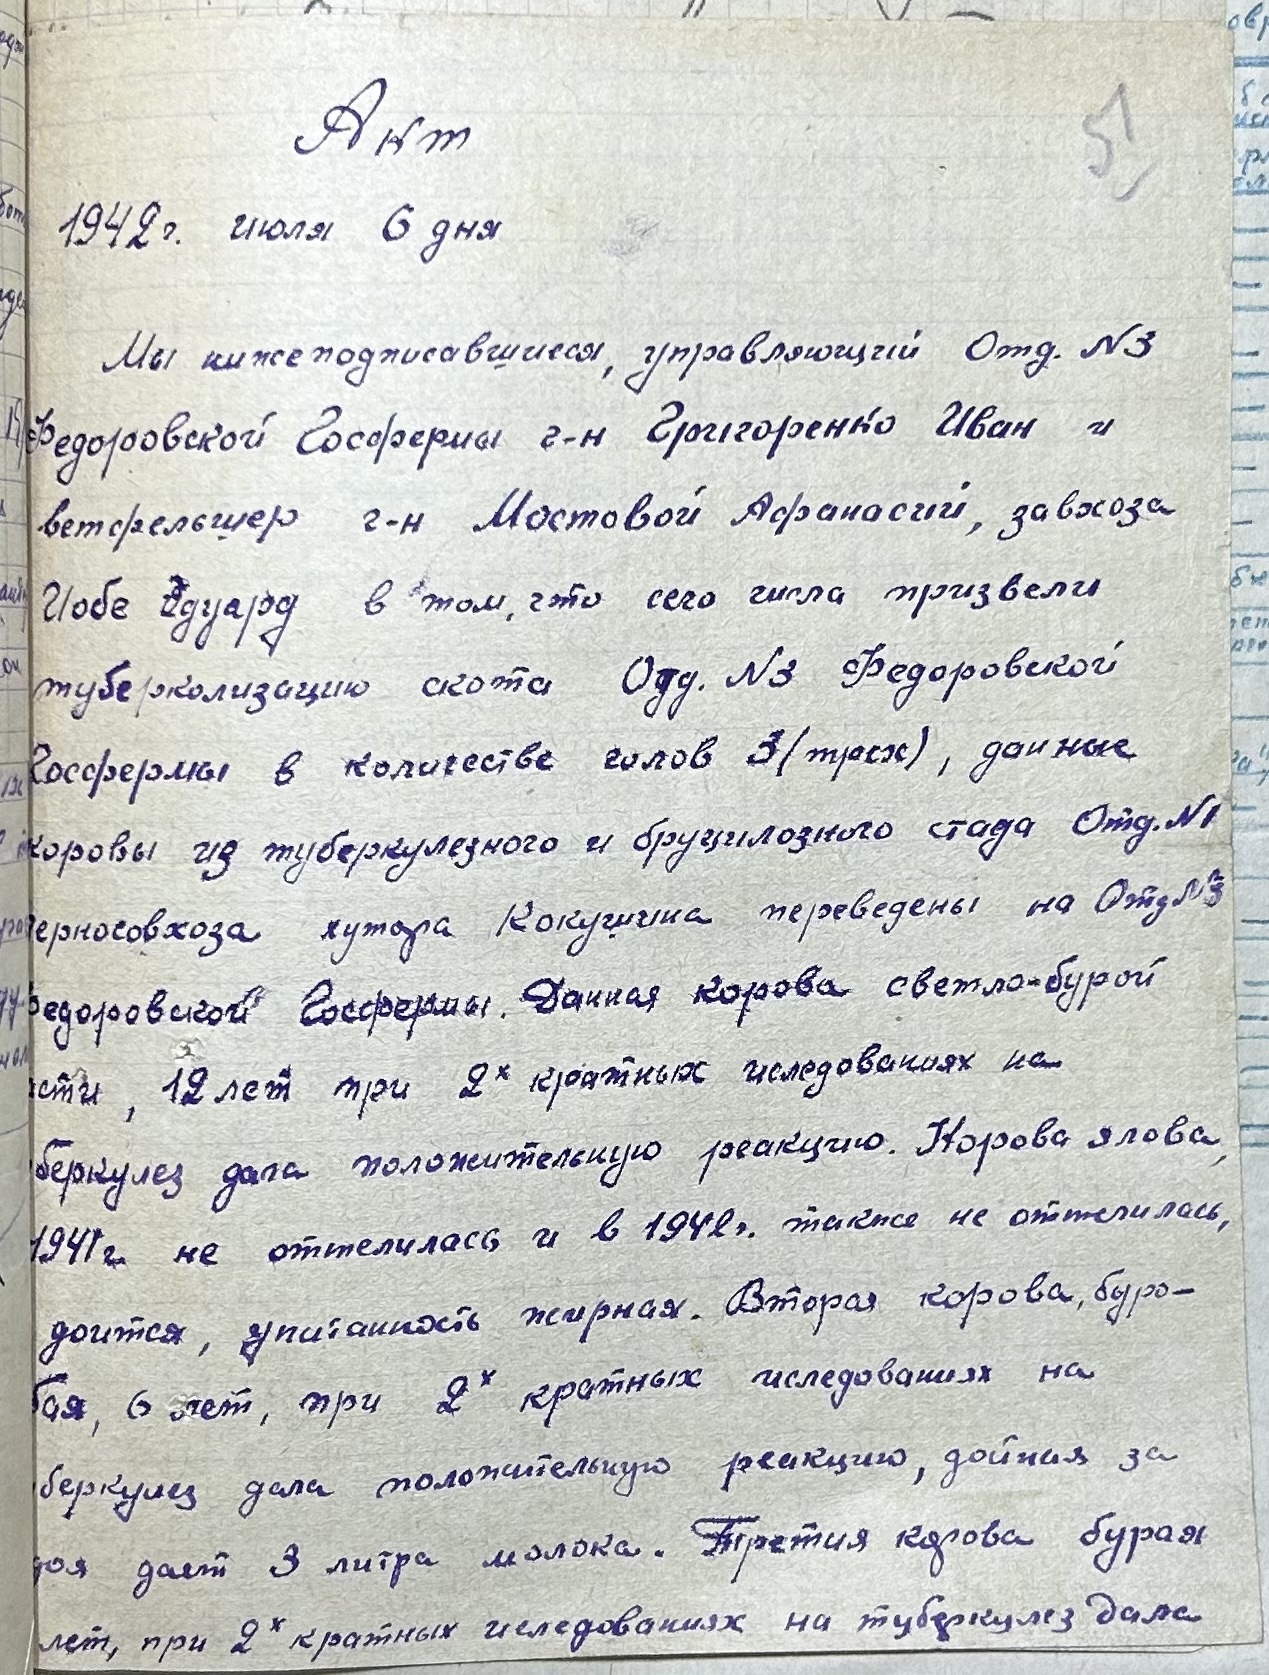 Акт
51
1942г. июля 6 дня
Мы нижеподписавшиеся, управляющий Отд. №3
Федоровской Госфермы г-н Григоренко Иван и
ветфельшер г-н Мостовой Афанасий, завхоза
Иобе Эдуард в том, что сего числа призвели
туберколизацию скота Отд. №3 Федоровской
Госфермы в количестве голов 3 (трех), данные
коровы из туберкулезного и бруцилозного стада Отд. №1
черносовхоза хутора Кокушина переведены на Отд №3
Федоровской Госфермы. Данная корова светло-бурой
асти, 12 лет при 2х кратных иследованиях на
беркулез дала положительную реакцию. Корова ялова,
1941г. не оттелилась и в 1942г. также не оттелилась,
доится, упитанность жирная. Вторая корова, буро-
бая, 6 лет, при 2х кратных иследованиях на
беркулез дала положительную реакцию, дойная за
доя дает 3 литра молока. Третия корова бурая
лет, при 2х кратных иследованиях на туберкулез дала